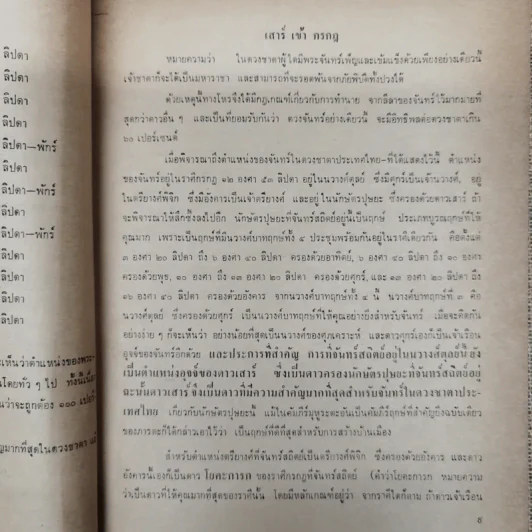 ลิปดา
ลิปดา
ลิปดา
ลิปดา
ลิปดา—พักร์
ลิปดา
ลิปดา—พักร์
ลิปดา
ลิปดา—พักร์
ลิปดา
ลิปดา
ลิปดา
ลิปดา
เห็นว่าตำแหน่งของพระ
นโดยทั่ว ๆ ไป ทั้งนี้เนื่อ
นว่าจะถูกต้อง ๑๐๐ เปอร์
ญมากที่สุดในดวงชาตา
เสาร์ เข้า กรกฎ
หมายความว่า ในดวงชาตาผู้ใดมีพระจันทร์เพ็ญและเข้มแข็งด้วยเพียงอย่างเดียวนี้
เจ้าชาตาก็จะได้เป็นมหาราชา และสามารถที่จะรอดพ้นจากภัยพิบัติทั้งปวงได้
ด้วยเหตุนี้ทางโหรจึงได้มีกฎเกณฑ์เกี่ยวกับการทำนาย จากลีลาของจันทร์ไว้มากมายที่
สุดกว่าดาวอื่น ๆ และเป็นที่ยอมรับกันว่า ดวงจันทร์อย่างเดียวนี้ จะมีอิทธิพลต่อดวงชาตาเกิน
๖๐ เปอร์เซนต์
เมื่อพิจารณาถึงตำแหน่งของจันทร์ในดวงชาตาประเทศไทย—ที่ได้แสดงไว้นี้ ตำแหน่ง
ของจันทร์อยู่ในราศีกรกฎ ๑๒ องศา ๕๓ ลิปดา อยู่ในนวางค์ตุลย์ ซึ่งมีศุกร์เป็นเจ้านวางค์, อยู่
ในตรียางค์พิจิก ซึ่งมีอังคารเป็นเจ้าตรียางค์ และอยู่ในนักษัตรปุษยะ ซึ่งครองด้วยดาวเสาร์ ถ้า
จะพิจารณาให้ลึกซึ้งลงไปอีก นักษัตรปุษยะที่จันทร์สถิตย์อยู่นี้เป็นฤกษ์ ประเภทบูรณฤกษ์ที่ให้
คุณมาก เพราะเป็นฤกษ์ที่มีนวางค์บาทฤกษ์ทั้ง ๔ ประชุมพร้อมกันอยู่ในราศีเดียวกัน คือตั้งแต่
๓ องศา ๒๐ ลิปดา ถึง ๖ องศา ๔๐ ลิปดา ครองด้วยอาทิตย์, ๖ องศา ๔๐ ลิปดา ถึง ๑๐ องศา
ครองด้วยพุธ, ๑๐ องศา ถึง ๑๓ องศา ๒๐ ลิปดา ครองด้วยศุกร์, และ ๑๓ องศา ๒๐ ลิปดา ถึง
๑๖ องศา ๔๐ ลิปดา ครองด้วยอังคาร จากนวางค์บาทฤกษ์ทั้ง ๔ นี้ นวางค์บาทฤกษ์ที่ ๓ คือ
นวางค์ตุลย์ ซึ่งครองด้วยศุกร์ เป็นนวางค์บาทฤกษ์ที่ให้คุณอย่างยิ่งสำหรับจันทร์ เมื่อจะคิดกัน
อย่างง่าย ๆ ก็จะเห็นว่า อย่างน้อยที่สุดเป็นนวางค์ของศุภเคราะห์ และดาวศุกร์เองก็เป็นเจ้าเรือน
อุจจ์ของจันทร์อีกด้วย และประการที่สำคัญ การที่จันทร์สถิตย์อยู่ในนวางค์ตุลย์นี้ ยัง
เป็นตำแหน่งอุจจ์ของดาวเสาร์ ซึ่งเป็นดาวครองนักษัตรปุษยะที่จันทร์สถิตย์อยู่
ฉะนั้นดาวเสาร์ จึงเป็นดาวที่มีความสำคัญมากที่สุดสำหรับจันทร์ในดวงชาตาประ-
เทศไทย เกี่ยวกับนักษัตรปุษยะนี้ แม้ในคัมภีร์มุหูระตะอันเป็นคัมภีร์ฤกษ์ที่สำคัญยิ่งฉบับเดียว
ของภารตะก็ได้กล่าวเอาไว้ว่า เป็นฤกษ์ที่ดีที่สุดสำหรับการสร้างบ้านเมือง
สำหรับตำแหน่งตรียางค์ที่จันทร์สถิตย์เป็นตรียางค์พิจิก ซึ่งครองด้วยอังคาร และดาว
อังคารนี้เองก็เป็นดาว โยคะการก ของราศีกรกฎที่จันทร์สถิตย์ (คำว่าโยคะการก หมายความ
ว่าเป็นดาวที่ให้คุณมากที่สุดของราศีนั้น โดยมีหลักเกณฑ์อยู่ว่า จากราศีใดก็ตาม ถ้าดาวเจ้าเรือน